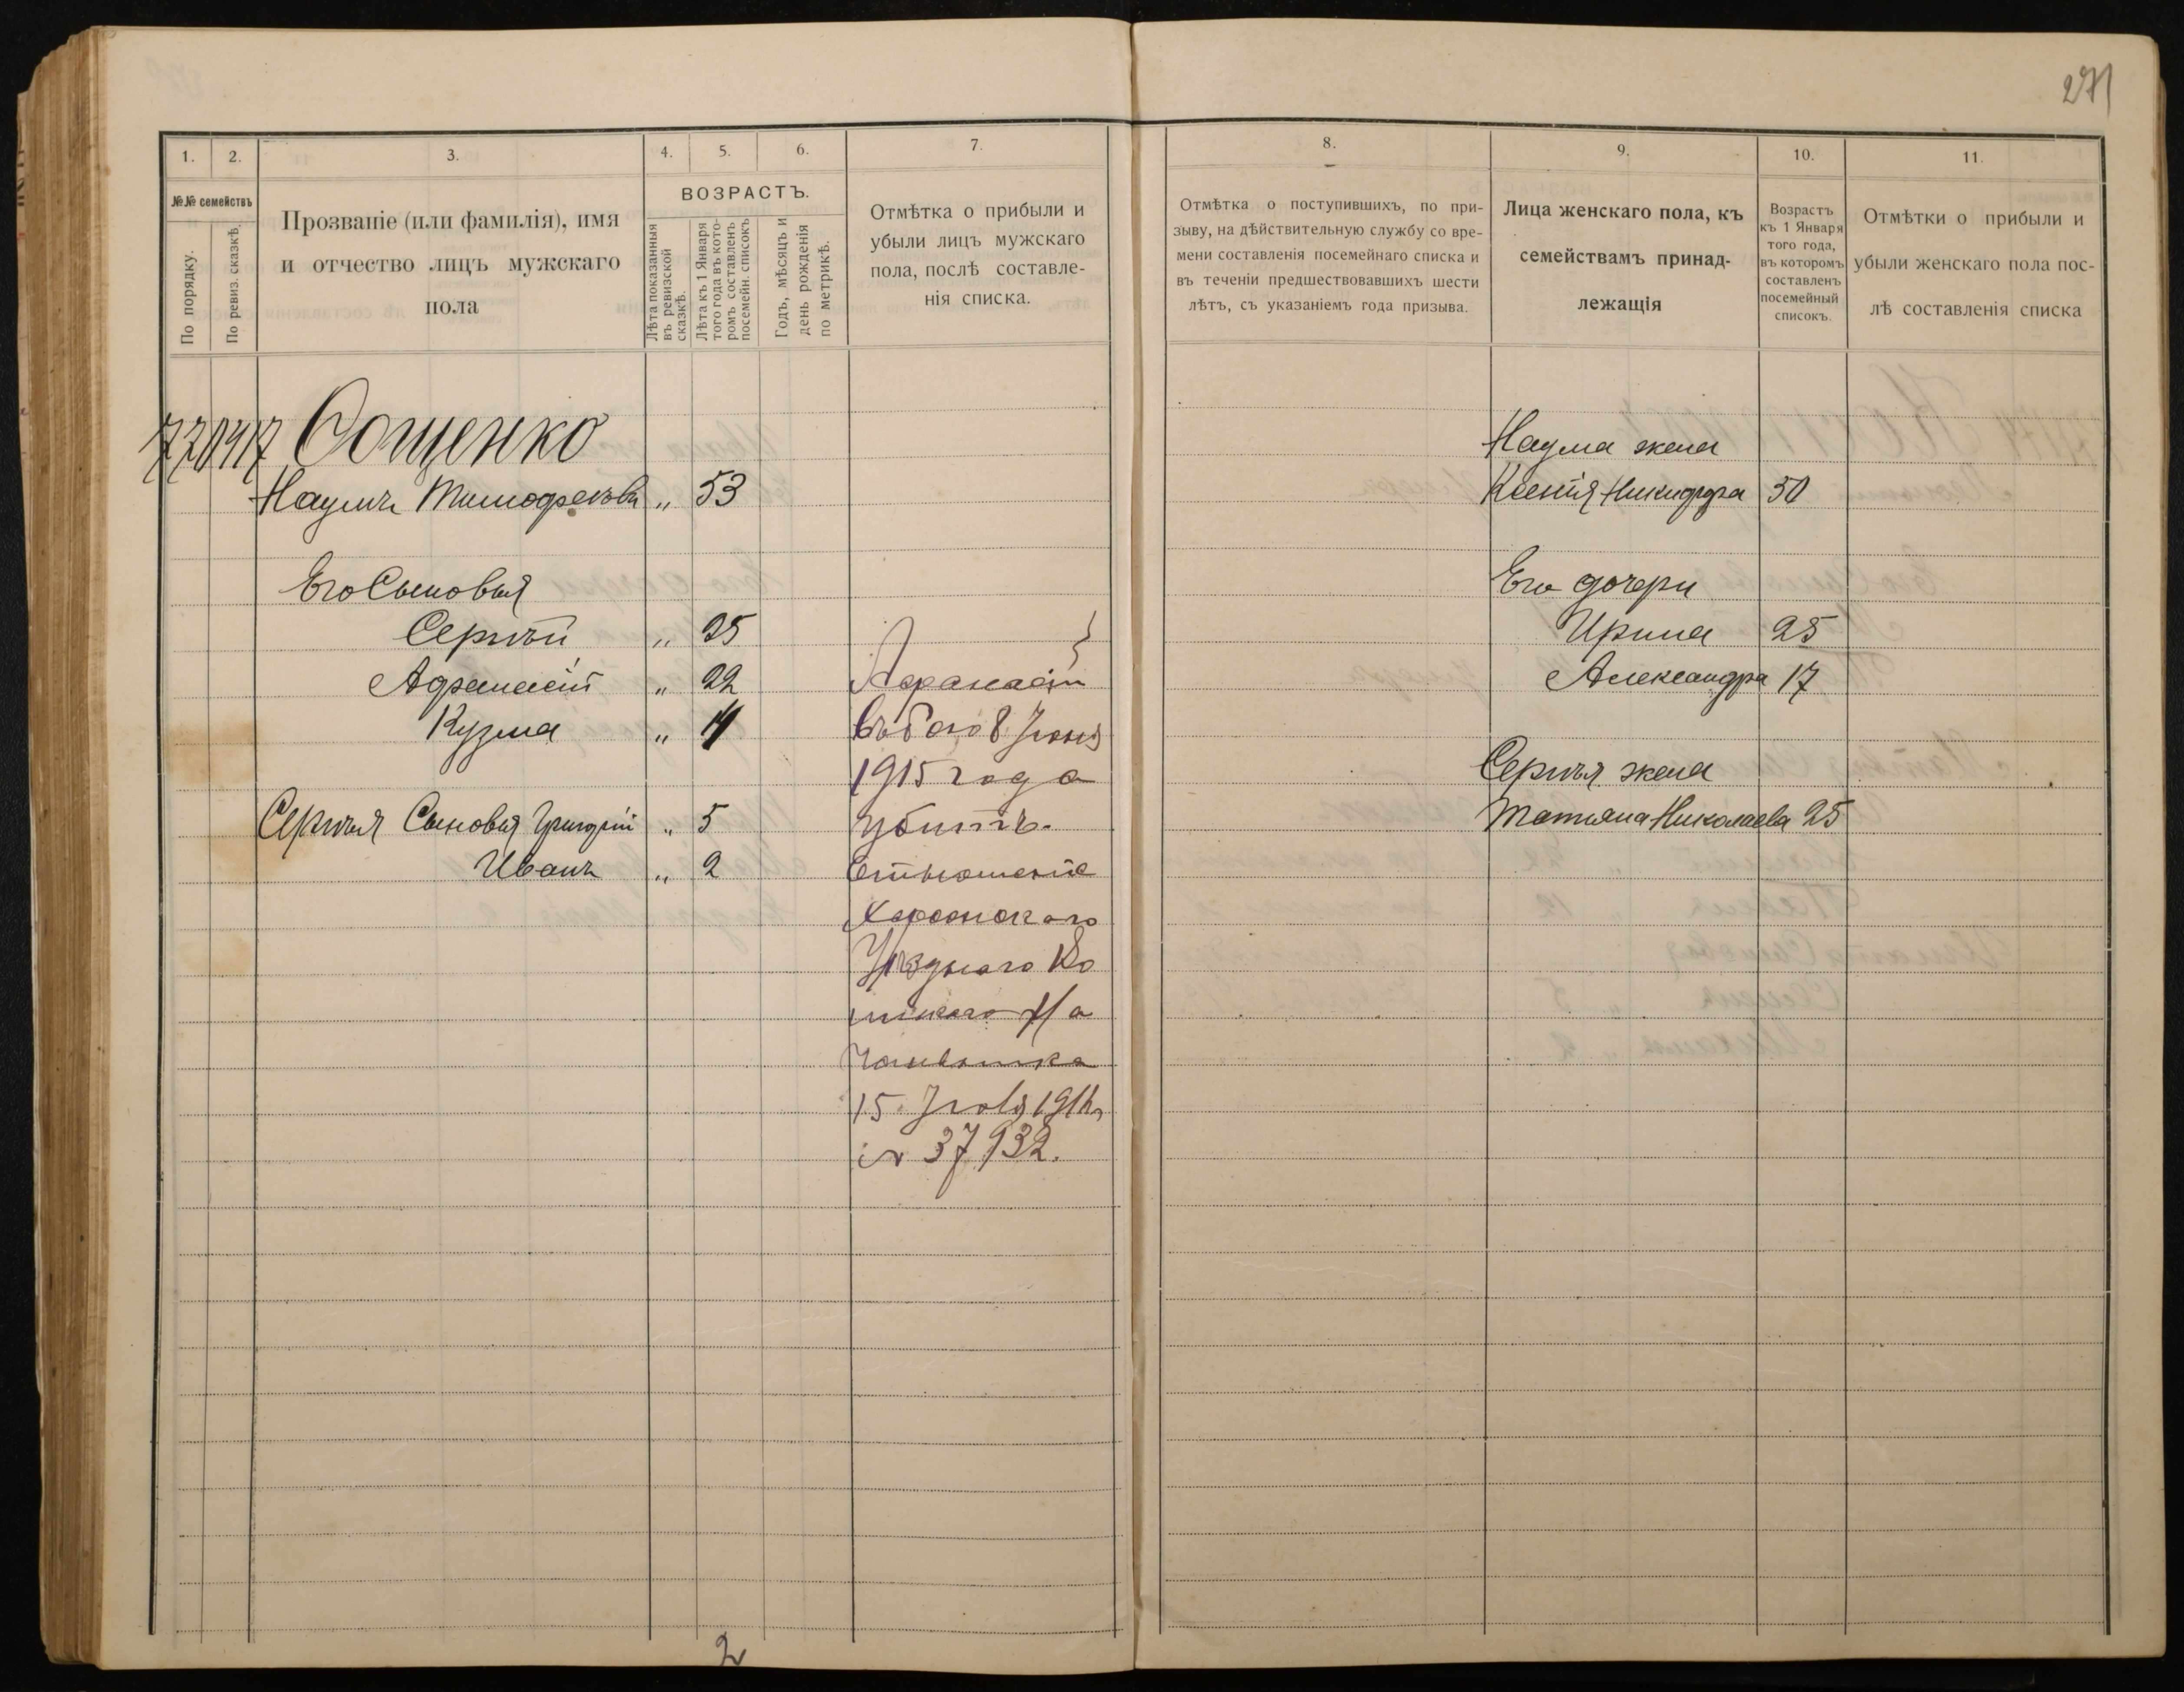 271
1.
2.
3.
4.
5.
6.
7.
№№ семействъ
По порядку.
По ревиз. сказкѣ.
Прозваніе (или фамилія), имя
и отчество лицъ мужскаго
пола
ВОЗРАСТЪ.
Лѣта показанныя
въ ревизской
сказкѣ.
Лѣта къ 1 Января
того года въ кото-
ромъ составленъ
посемейн. списокъ
Годъ, мѣсяцъ и
день рожденія
по метрикѣ.
Отмѣтка о прибыли и
убыли лицъ мужскаго
пола, послѣ составле-
нія списка.
Наумъ Тимофеевъ „ 53
Его Сыновья
Сергѣй „ 25
Афанасій „ 22
Кузма „
Сергѣя Сыновья Григорій „ 5
Иванъ „ 2
Афанасій
въ бою 8 Іюня
1915 года
убитъ.
Херсонскаго
Уѣзднаго Во
инскаго На
чальника
15 Іюля
№ 37932.
2
8.
9.
10.
11.
Отмѣтка о поступившихъ, по при-
зыву, на дѣйствительную службу со вре-
мени составленія посемейнаго списка и
въ теченіи предшествовавшихъ шести
лѣтъ, съ указаніемъ года призыва.
Лица женскаго пола, къ
семействамъ принад-
лежащія
Возрастъ
къ 1 Января
того года,
въ которомъ
составленъ
посемейный
списокъ.
Отмѣтки о прибыли и
убыли женскаго пола пос-
лѣ составленія списка
Наума жена
Ксенія Никифора 50
Его дочери
Ирина 25
Александра 17
Сергѣя жена
Татьяна Николаева 25